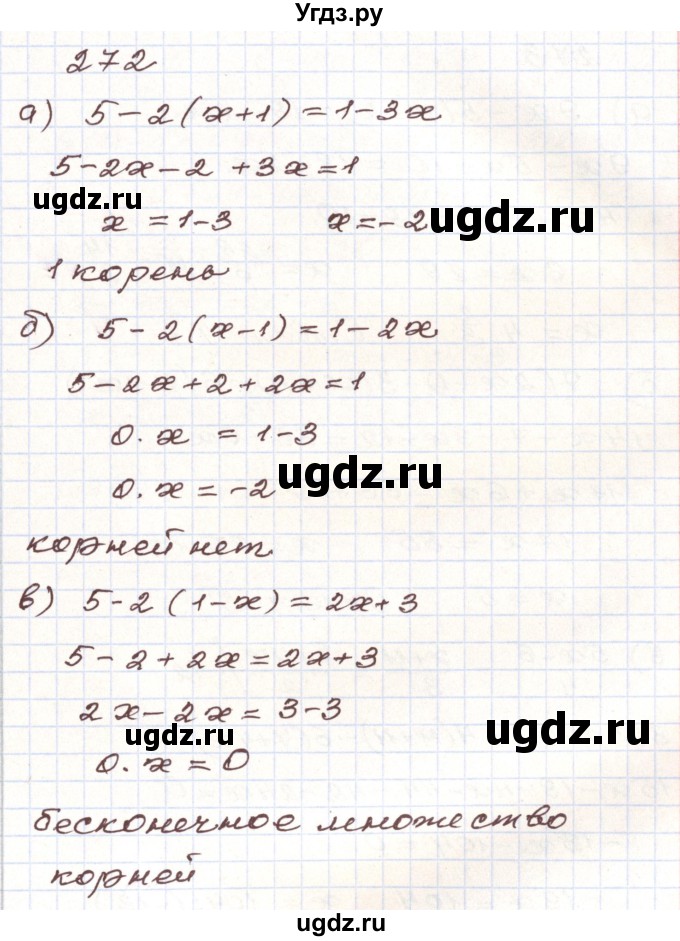 Угдз.ру
272
а) 5-2(x+1)=1-3x
5-2x-2+3x=1
ugdz.ru
x=1-3 x=-2 ugdz.ru
1 корень
б) 5-2(x-1)=1-2x
5-2x+2+2x=1
0·x=1-3
0·x=-2 ugdz.ru
корней нет.
в) 5-2(1-x)=2x+3
5-2+2x=2x+3
2x-2x=3-3
ugdz.ru ugdz.ru
0·x=0
бесконечное множество
корней
ugdz.ru